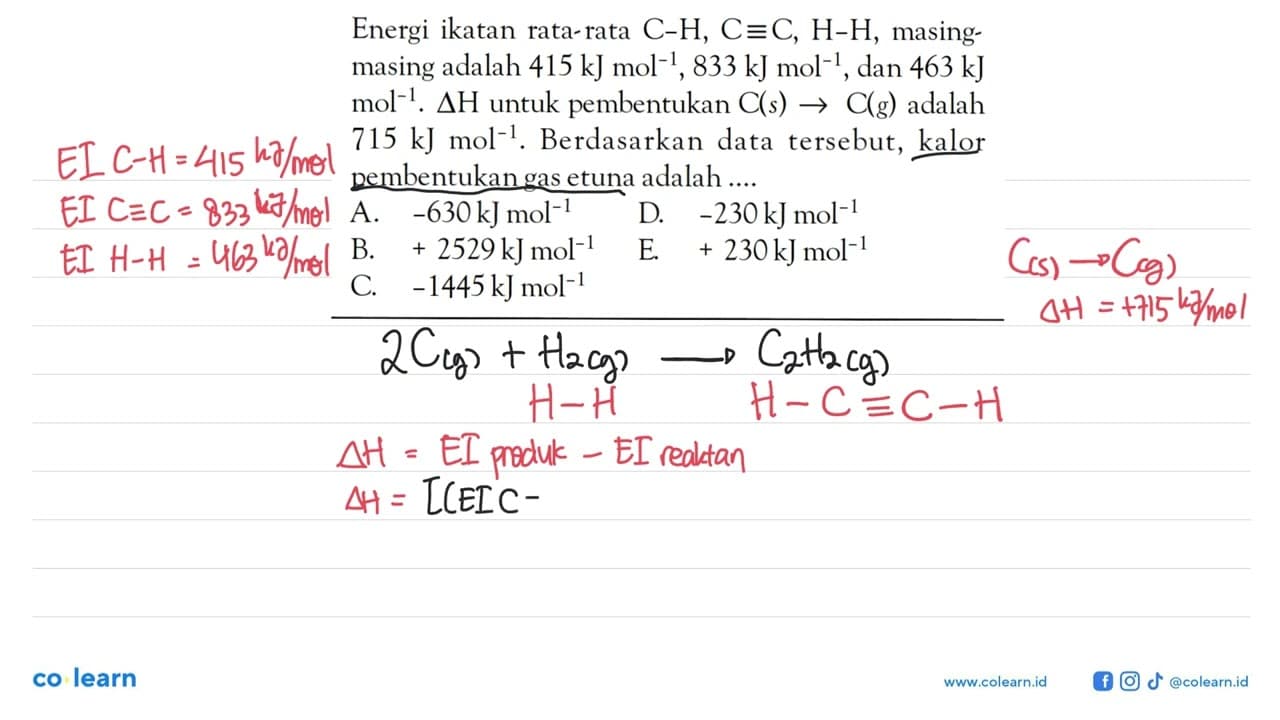 Energi ikatan rata-rata C–H, C≡C, H–H, masing-
masing adalah 415 kJ mol⁻¹, 833 kJ mol⁻¹, dan 463 kJ
mol⁻¹. ΔH untuk pembentukan C(s) → C(g) adalah
715 kJ mol⁻¹. Berdasarkan data tersebut, kalor
pembentukan gas etuna adalah ....
A. –630 kJ mol⁻¹ D. –230 kJ mol⁻¹
B. + 2529 kJ mol⁻¹ E. + 230 kJ mol⁻¹
C. –1445 kJ mol⁻¹
EI C-H = 415 kJ/mol
EI C≡C = 833 kJ/mol
EI H-H = 463 kJ/mol
C(s) → C(g)
ΔH = +715 kJ/mol
2C(g) + H₂(g) → C₂H₂(g)
H–H H–C≡C–H
ΔH = EI produk – EI reaktan
ΔH = [(EI C-
co learn
www.colearn.id @colearn.id